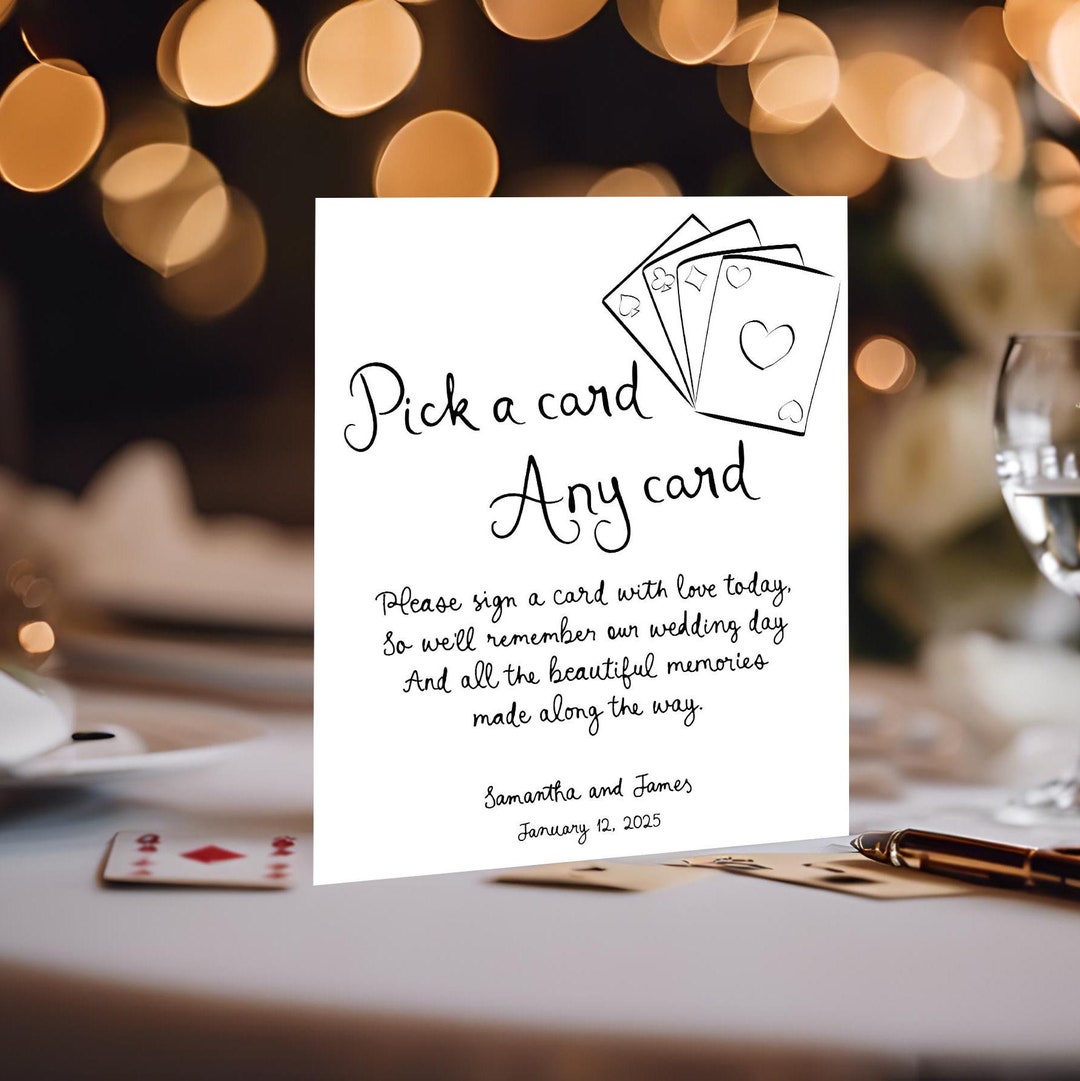 Pick a card
Any card
Please sign a card with love today,
So we'll remember our wedding day
And all the beautiful memories
made along the way.
Samantha and James
January 12, 2025